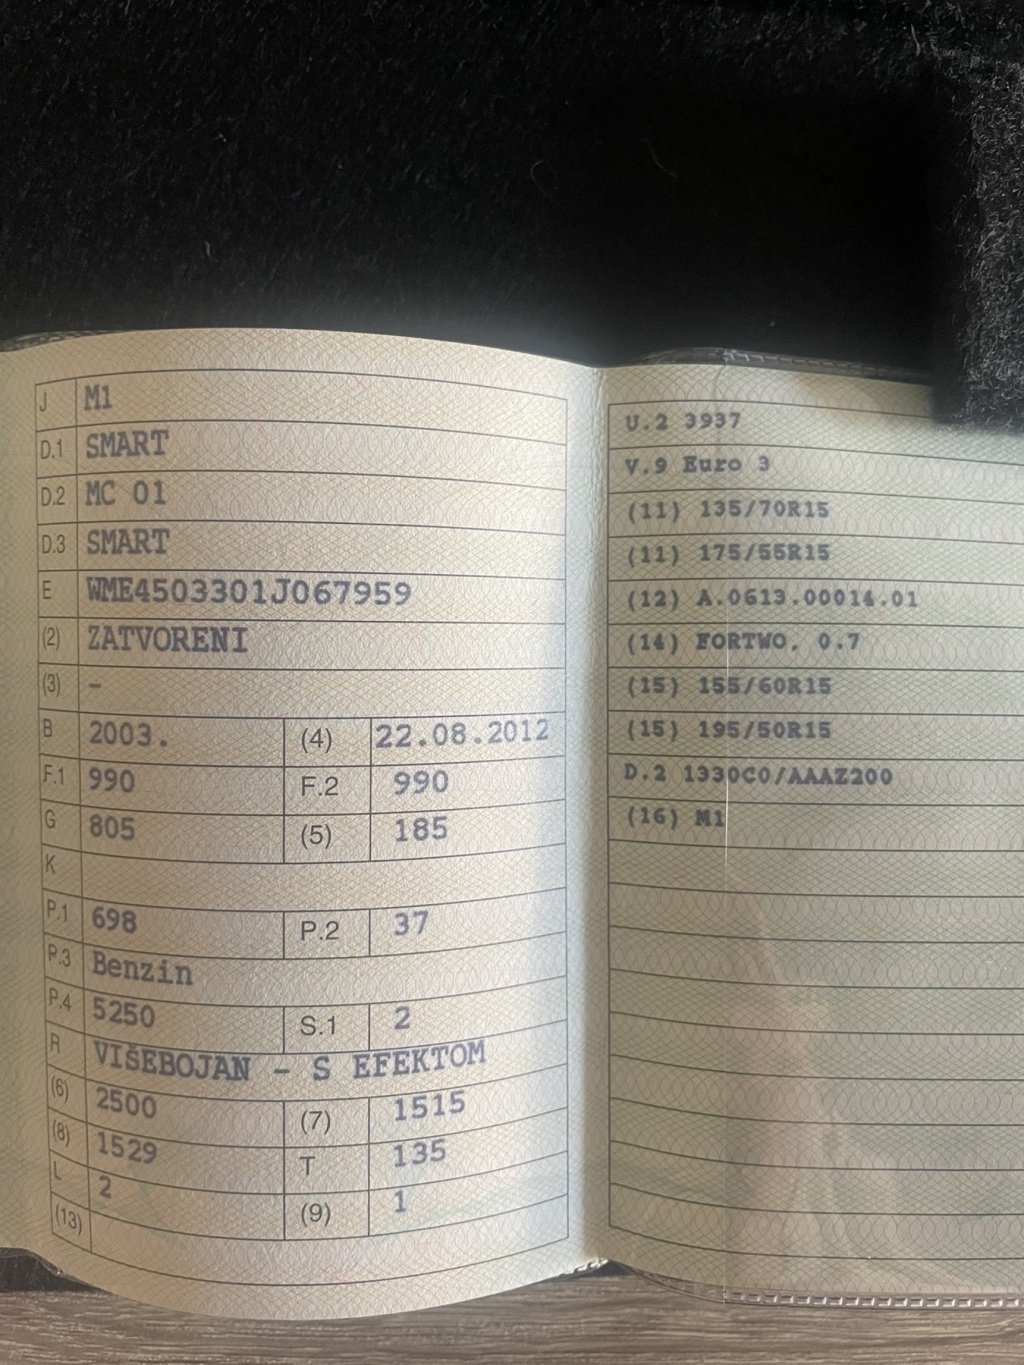 J M1
D.1 SMART
D.2 MC 01
D.3 SMART
E WME4503301J067959
(2) ZATVORENI
(3) –
B 2003. (4) 22.08.2012
F.1 990 F.2 990
G 805 (5) 185
K
P.1 698 P.2 37
P.3 Benzin
P.4 5250 S.1 2
R VIŠEBOJAN – S EFEKTOM
(6) 2500 (7) 1515
(8) 1529 T 135
L 2 (9) 1
(13)
U.2 3937
V.9 Euro 3
(11) 135/70R15
(11) 175/55R15
(12) A.0613.00014.01
(14) FORTWO, 0.7
(15) 155/60R15
(15) 195/50R15
D.2 1330C0/AAAZ200
(16) M1